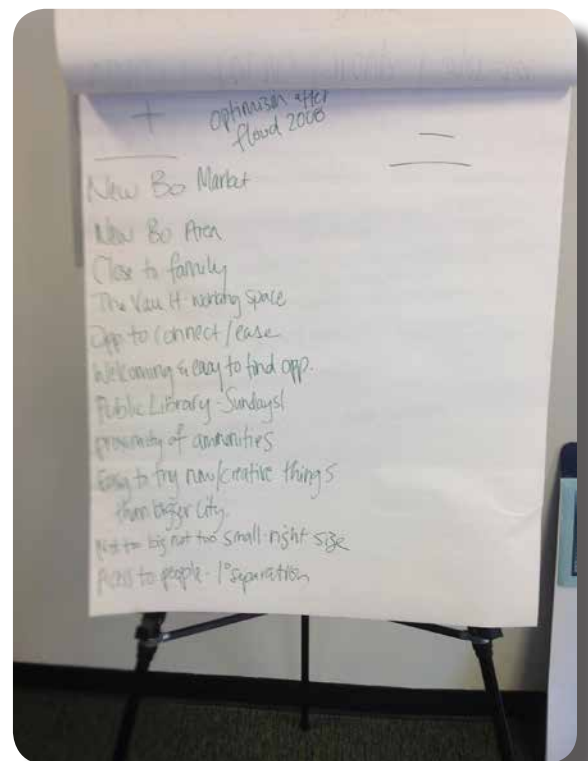 +
optimism after
flood 2008
—
New Bo Market
New Bo Area
Close to family
The Vault-working space
Opp to connect/ease
Welcoming & easy to find opp.
Public Library-Sundays!
proximity of ammenities
Easy to try new/creative things
than bigger city.
Not to big not too small-right size
Access to people-1° separation